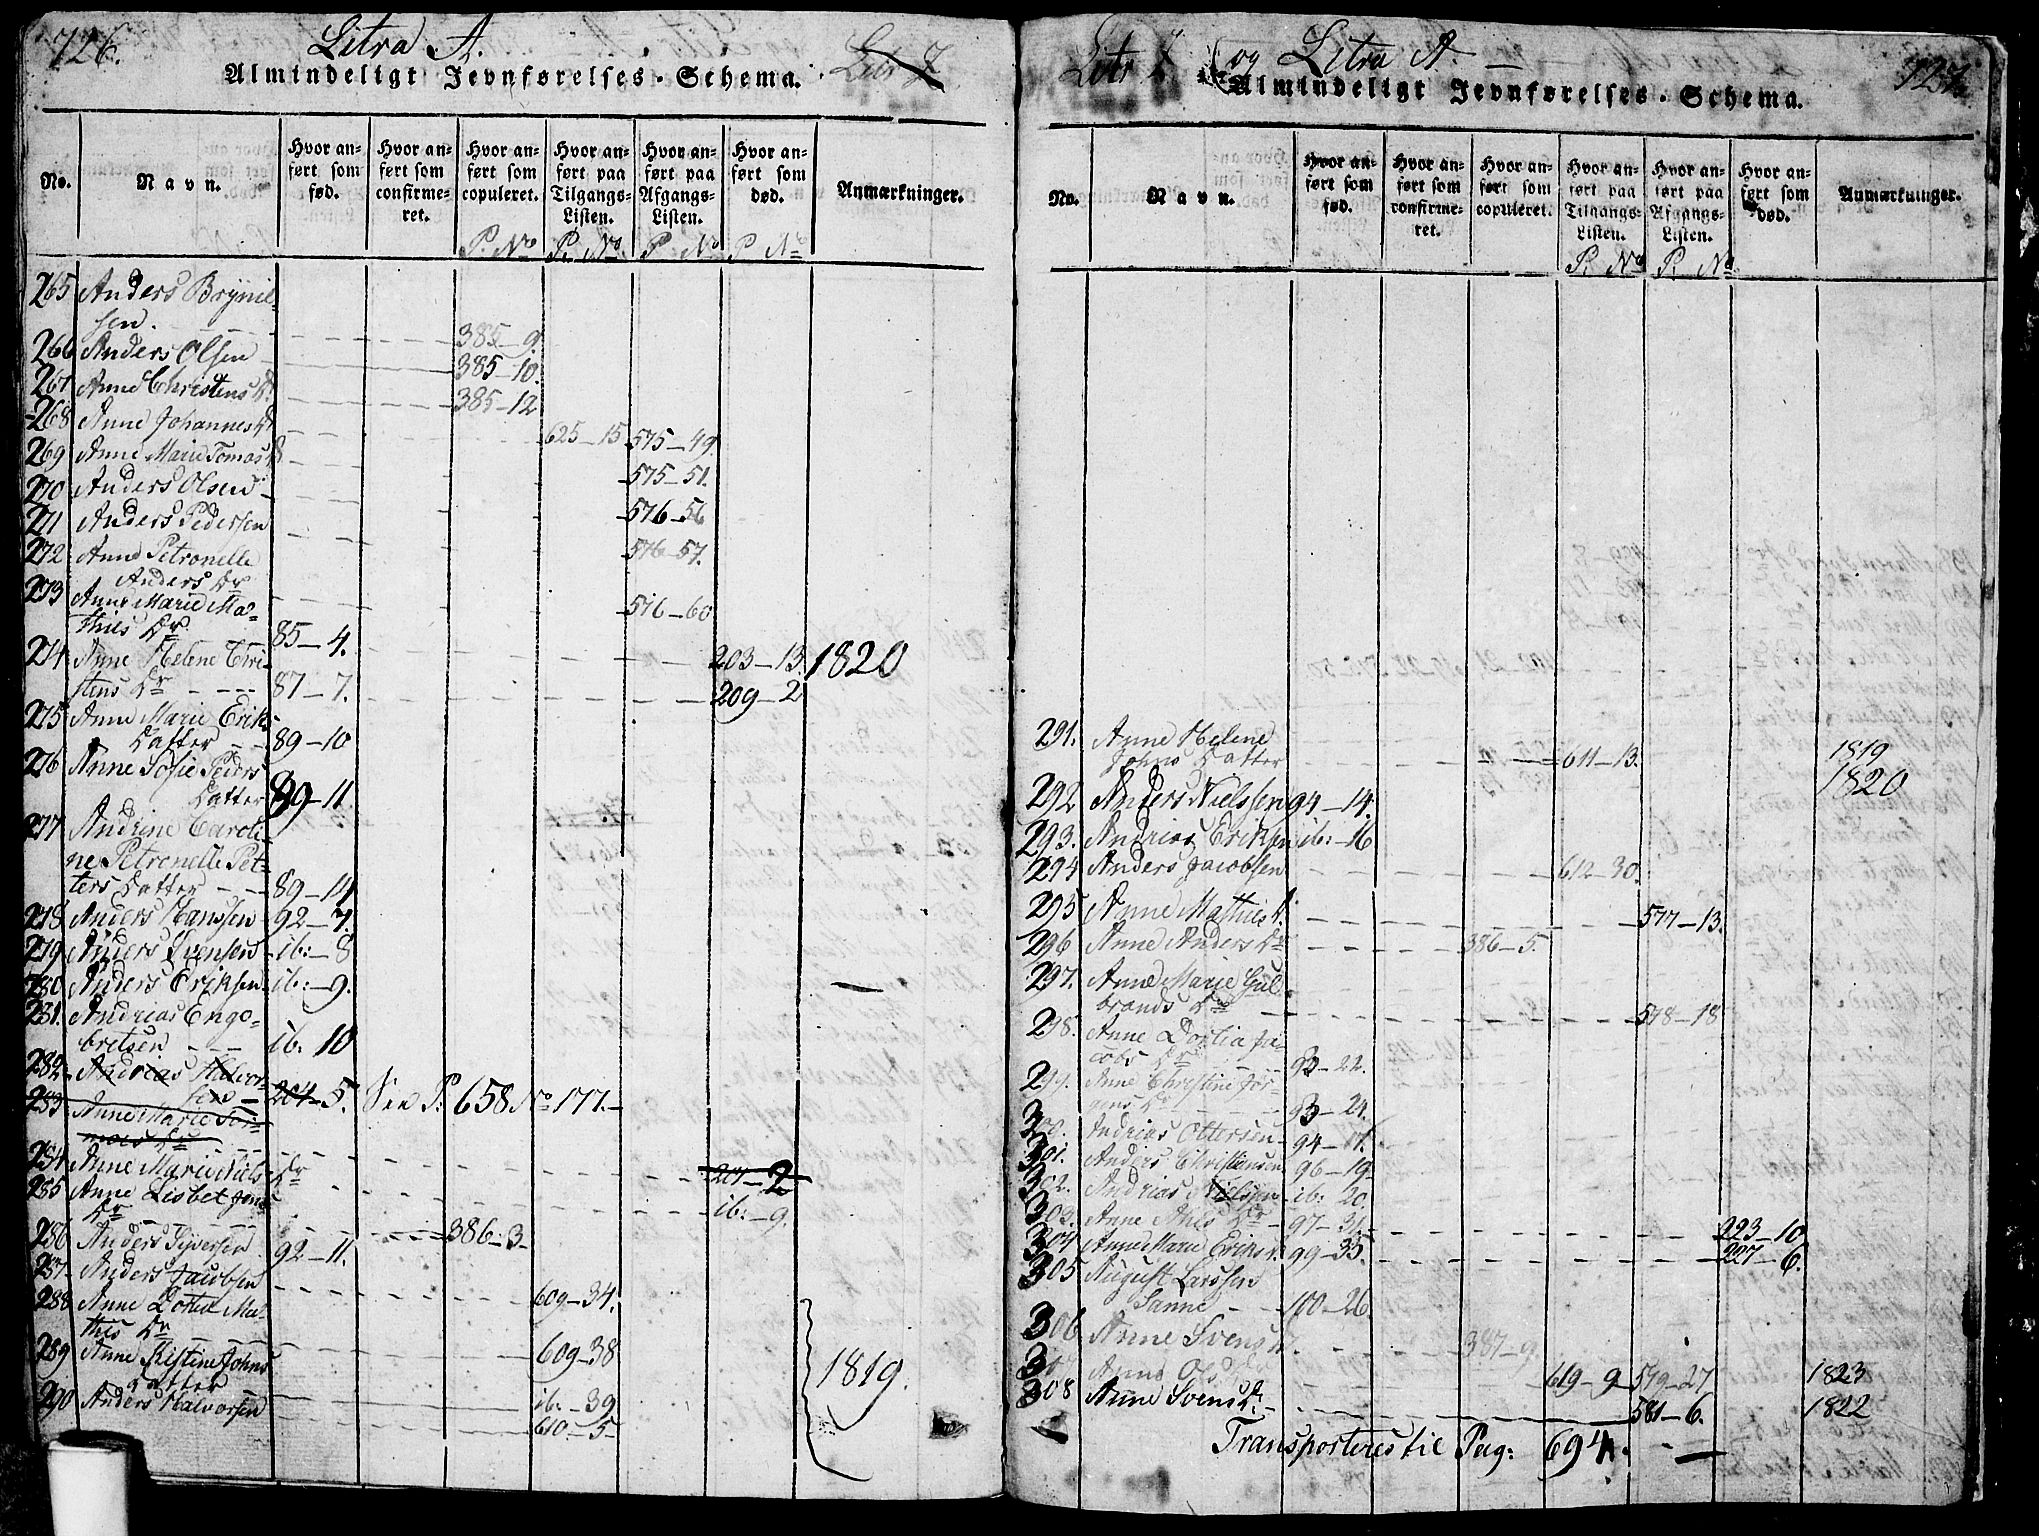 726.
Litra A.
Litr Z
Almindeligt Jevnførelses-Schema.
No.
Navn.
Hvor anført som fød.
Hvor anført som confirmeret.
Hvor anført som copuleret.
Hvor anført paa Tilgangs-Listen.
Hvor anført paa Afgangs-Listen.
Hvor anført som død.
Anmærkninger.
P. No P. No P No P No
265 Anders Brynil-
sen. 385-9.
266 Anders Olsen 385-10.
267 Anne Christens Dr 385-12
268 Anne Johannes Dr 625-15 575-49.
269 Anne Marie Tomas Dr 575-51.
270 Anders Olsen 576-56
271 Anders Pedersen 576-57.
272 Anne Petronelle
Anders Dr 576-60
273 Anne Marie Ma-
thies Dr. 85-4. 203-13. 1820
274 Anne Helene Chri-
stens Dr 87-7. 209-2
275 Anne Marie Eriks
Datter 89-10
276 Anne Sofie Peders
Datter 89-11.
277 Andrine Caroli-
ne Petronelle Pet-
ters Datter 89-14
278 Anders Hanssen 92-7.
279 Anders Svensen ib:-8
280 Anders Eriksen ib:-9.
281. Andrias Engo-
bretsen ib: 10
282 Andrias Halvor-
sen 204-5. See P: 658 No 177.
283 Anne Marie
Dr
284 Anne Marie Niels Dr 201-2
285 Anne Lisbet Jens
Dr ib:-9.
286 Anders Syversen 92-11. 386-3
287 Anders Jacobsen 609-34.
288 Anne Dortea Ma-
this Dr 609-38
289 Anne Kistine Johns
Datter ib.-39 1819.
290 Anders Halvorsen 610-5
Litr Z og Litra A.
727.
Almindeligt Jevnførelses-Schema.
No.
Navn.
Hvor anført som fød.
Hvor anført som confirmeret.
Hvor anført som copuleret.
Hvor anført paa Tilgangs-Listen.
Hvor anført paa Afgangs-Listen.
Hvor anført som død.
Anmærkninger.
P. No P. No
291. Anne Helene
Johns Datter 611-13. 1819
292 Anders Nielssen 94-14. 1820
293. Andrias Eriksen ib:-16
294 Anders Jacobsen 612-30.
295 Anne Mathies Dr. 577-13.
296 Anne Anders Dr 386-5.
297. Anne Marie Gul-
brands Dr 578-18
298. Anne Dortia Ja-
cobs Dr 93-22.
299. Anne Christine Jør-
Dr 93-24.
300. Andrias Ottersen 94-11.
301. Anders Christiansen 96-19.
302. Andrias Nielssen ib: 20.
303. Anne Nils Dr 97-31. 223-10.
304 Anne Marie Eriks D. 99-35. 227-6.
305 August Larssen
Sanne 100-26.
306 Anne Svens D. 387-9.
307 Anne Ols Dr 619-9 579-27 1823
308 Anne Svens Dr. 581-6. 1822
Transporteres til Pag: 694.